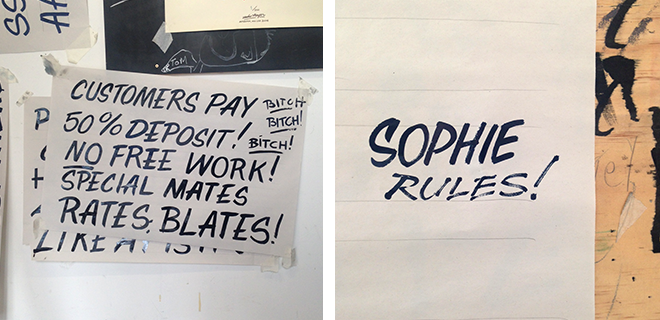 SS
AA
TOM
CUSTOMERS PAY BITCH
50% DEPOSIT! BITCH!
NO FREE WORK! BITCH!
SPECIAL MATES
RATES, BLATES!
SOPHIE
RULES!